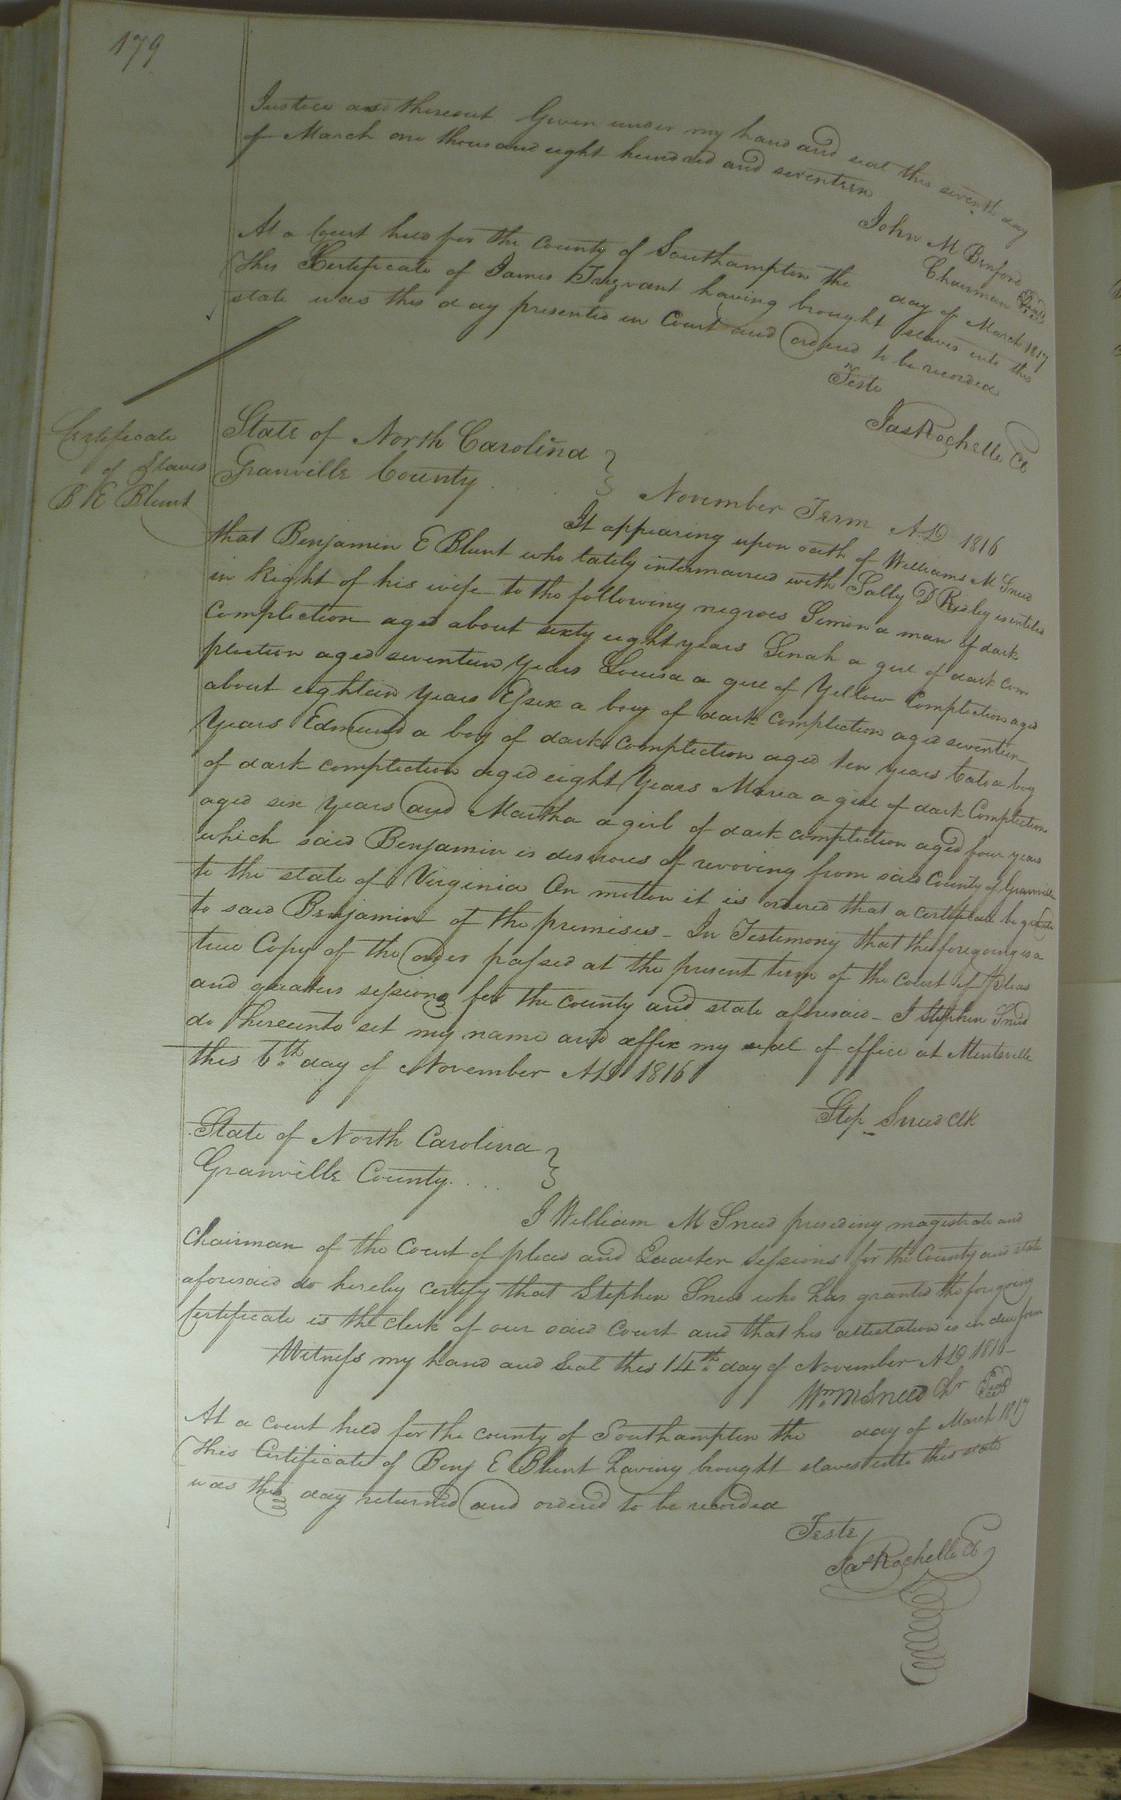 179
Justice and thereout Given under my hand and seal this seventh day
of March one thousand eight hundred and seventeen
John M Binford
Chairman Seal
At a Court held for the County of Southampton the day of March 1817
This Certificate of James Trezvant having brought slaves into this
state was this day presented in Court and ordered to be recorded
Teste
Jas Rochelle Cl
Certificate
of Slaves
B E Blunt
State of North Carolina
Granville County
November Term A.D 1816
It appearing upon oath of Williams M Sneed
that Benjamin E Blunt who lately intermarried with Sally D Ridley is intitled
in Right of his wife to the following negroes Simon a man of dark
Complection aged about sixty eight years Sinah a girl of dark Com
plection aged seventeen years Louisa a girl of Yellow Complection aged
about eighteen years Essex a boy of dark complection aged seventeen
Years Edmund a boy of dark complection aged ten years Cato a boy
of dark complection aged eight Years Maria a girl of dark Complection
aged six years and Martha a girl of dark complection aged four years
which said Benjamin is desirous of removing from said County of Granville
to the state of Virginia On motion it is ordered that a certificate be granted
to said Benjamin of the premises - In Testimony that the foregoing is a
true Copy of the order passed at the present term of the Court of Pleas
and quarter sessions for the county and state aforesaid - I Stephen Sneed
do hereunto set my name and affix my seal of office at
this 6th day of November AD 1816
Step Sneed Clk
State of North Carolina
Granville County....
I William M Sneed presiding magistrate and
Chairman of the Court of pleas and Quarter Sessions for the County and state
aforesaid do hereby certify that Stephen Sneed who has granted the foregoing
Certificate is the Clerk of our said Court and that his attestation is in due form
Witness my hand and Seal this 14th day of November AD 1816-
Wm M Sneed Chr Seal
At a court held for the county of Southampton the day of March 1817
This Certificate of Benj E Blunt having brought slaves into this state
was this day returned and ordered to be recorded
Teste
Jas Rochelle Cl